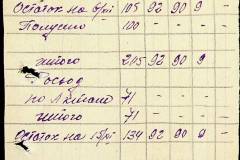 Остаток на 6/VIII 105 92 90 9 -
Получено 100 -
Итого 205 92 90 9 -
Расход
по Актам 71 -
Итого 71 -
Остаток на 15/VIII 134 92 90 9 -